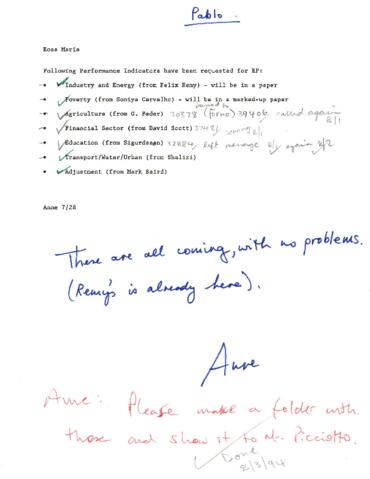 Pablo:
Rosa Maria
Following Performance Indicators have been requested for RP:
Industry and Energy (from Felix Remy) - will be in a paper
Poverty (from Soniya Carvalho) - will be in a marked-up paper
Agriculture (from G. Feder) 30378 (Forno) 39406 called again 8/1
Financial Sector (from David Scott) coming 8/1
Education (from Sigurdsson) left message 8/1 again 8/2
Transport/Water/Urban (from Shalizi)
Adjustment (from Mark Baird)
Anne 7/28
These are all coming, with no problems.
(Remy's is already here).
Anne
Anne: Please make a folder with
those and show it to Mr. Picciotto.
Done
8/3/94